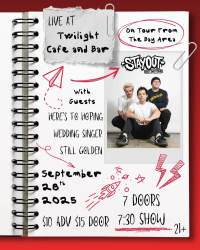 LIVE AT
Twilight
Cafe and Bar
On Tour From
The Bay Area
STAYOUT
With
Guests
HERE'S TO HOPING
WEDDING SINGER
STILL GOLDEN
September
28th
2025
$10 ADV $15 DOOR
7 DOORS
7:30 SHOW
21+